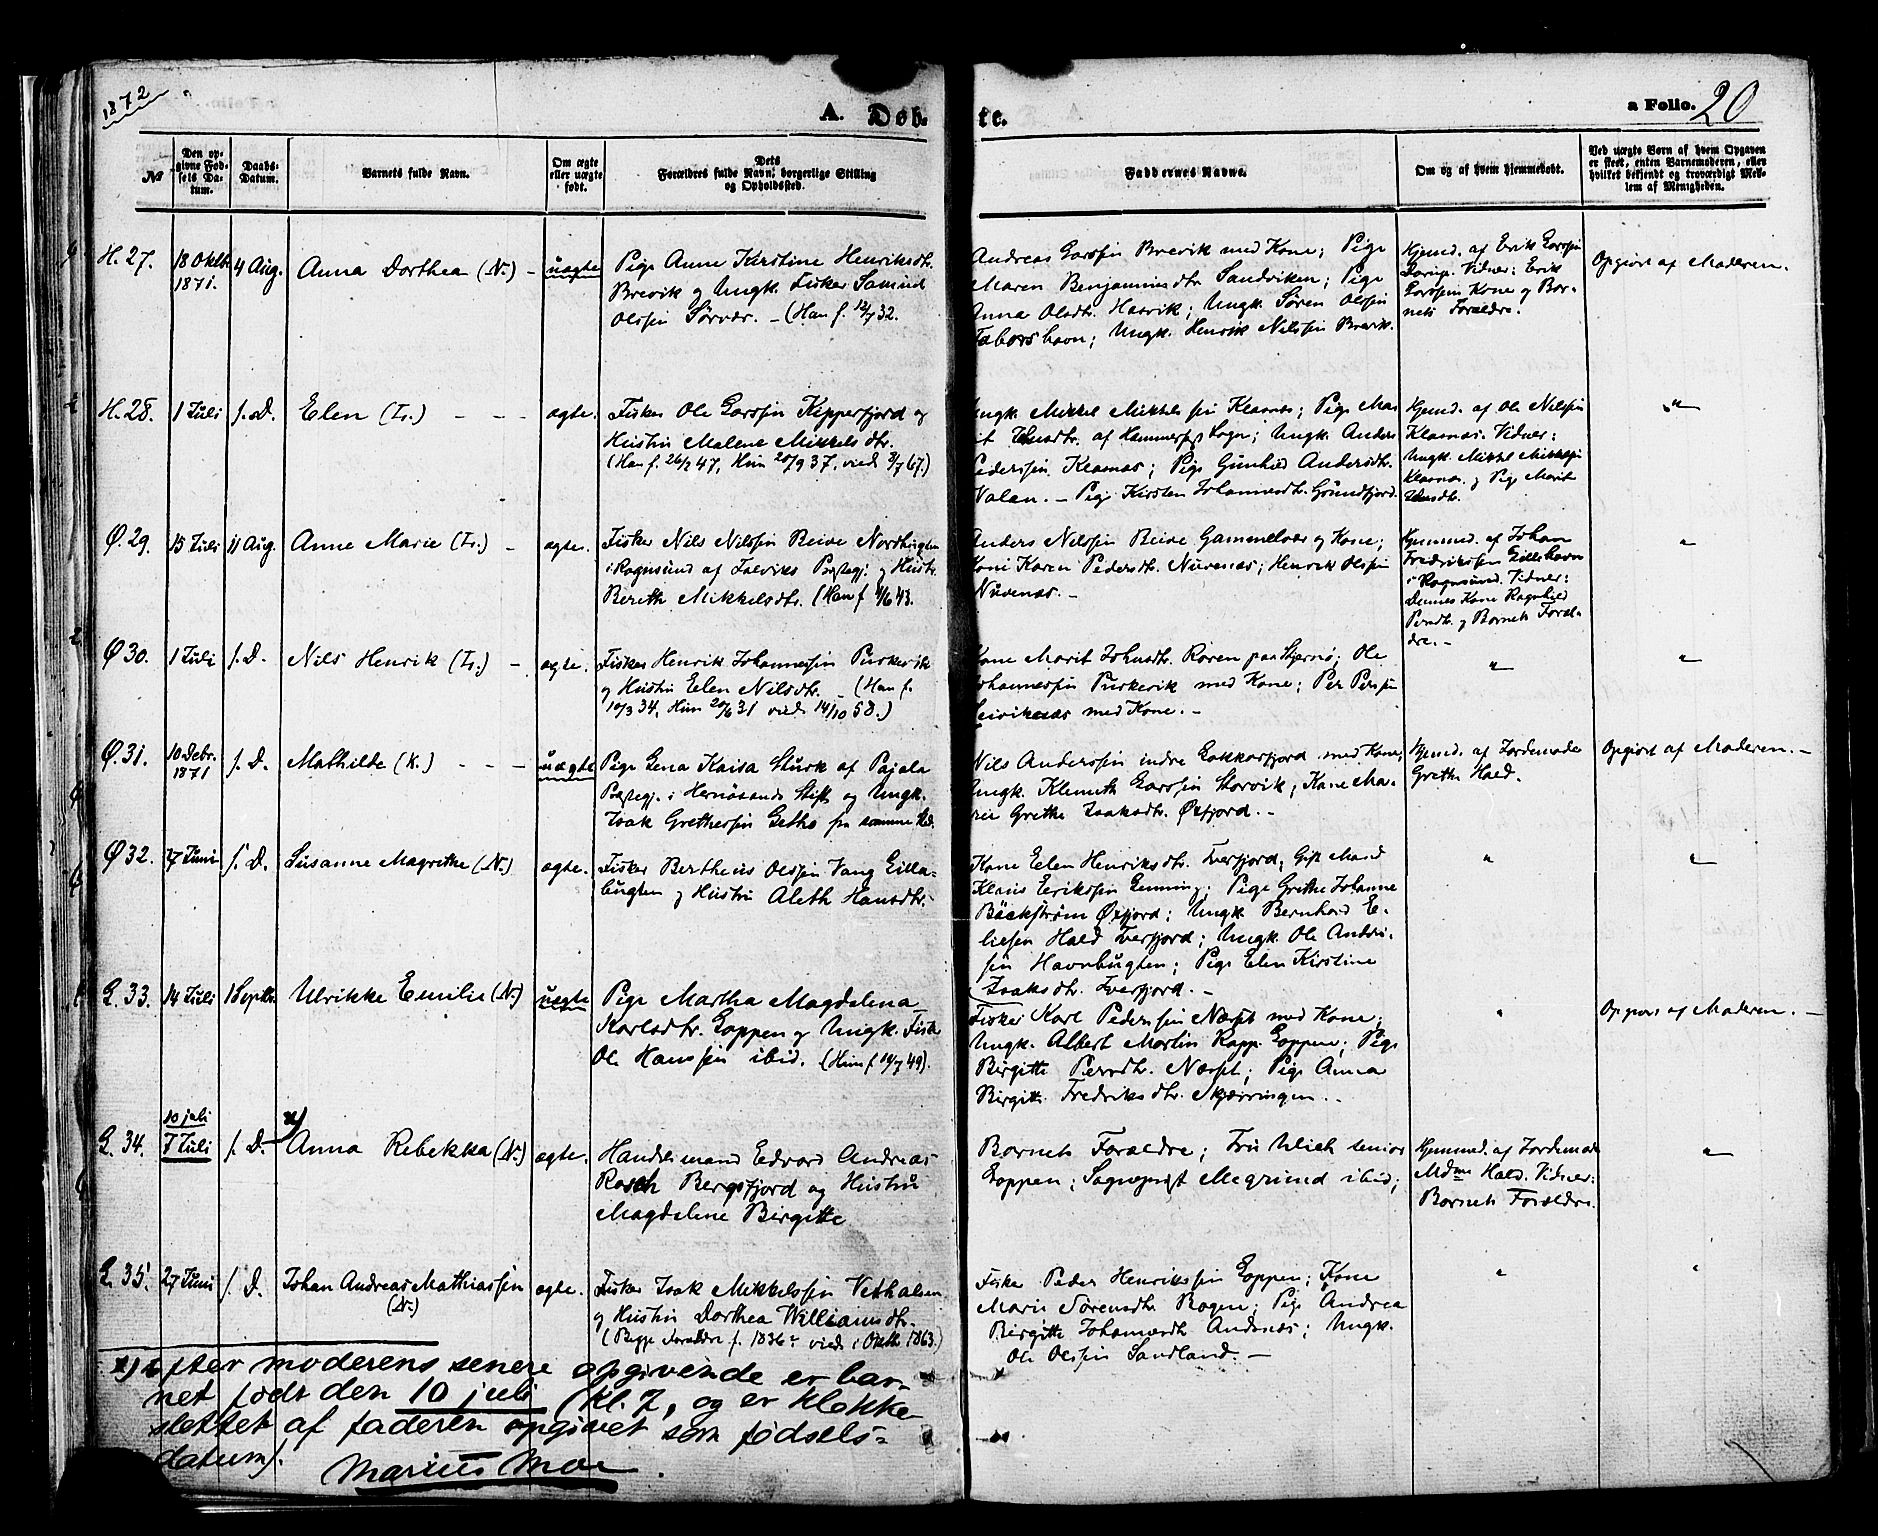 1872
A. Døb-
te.
a Folio. 20
№
Den op-
givne Fød-
sels Da-
tum.
Daabs-
Datum.
Barnets fulde Navn.
Om ægte
eller uægte
født.
Dets
Forældres fulde Navn, borgerlige Stilling
og Opholdssted.
Faddernes Navne.
Om og af hvem hjemmedøbt.
Ved uægte Børn af hvem Opgaven
er skeet, enten Barnemoderen, eller
hvilket bekjendt og troværdigt Med-
lem af Menigheden.
H. 27.
18 Oktbr.
1871.
4 Aug.
Anna Dorthea (N.) -
uægte
Pige Anne Kirstine Henriksdtr.
Brevik og Ungk. Fisker Samuel
Olssen Sørvær. - (Han f. 12/7 32.
Andreas Larssen Brevik med Kone; Pige
Maren Benjaminsdtr. Sandviken; Pige
Anna Olsdtr. Hasvik; Ungk. Søren Olssen
Ungk. Henrik Nilssen Brevik.
Hjemd. af Erik Larssen
Vidner: Erik
Larssens Kone og Bar-
nets Forældre.
Opgivet af Moderen.
H. 28.
1 Juli
s. D.
Elen (Ls.) - - -
ægte.
Fisker Ole Larssen Kipperfjord og
Hustru Malene Mikkelsdtr.
(Han f. 26/2 47, Hun 20/9 37, viede 3/7 67.)
Ungk. Mikkel Mikkelssen Klasnæs; Pige Mar-
it af Hammerfest Sogn; Ungk. Anders
Pederssen Klasnæs; Pige Gunhild Andersdtr.
Valan. - Pige Kirsten Johannesdtr. Grundfjord.
Hjemd. af Ole Nilssen
Klasnæs. Vidner:
Ungk. Mikkel Mikkelssen
Klasnæs og Pige Marit
"
Ø. 29.
15 Juli
11 Aug.
Anne Marie (Ls.) -
ægte.
Fisker Nils Nilssen Beive Nordbugten
i Rognsund af Talviks Præstegj. og Hustr.
Bereth Mikkelsdtr. (Han f. 1/6 43.
Anders Nilssen Beive Gammelvær og Kone;
Kone Karen Pedersdtr. Nuvenæs; Henrik Olssen
Nuvenæs. -
Hjemmed. af Johan
Fredrikssen Lillehavn
i Rognsund. Vidner:
Dennes Kone Ragnhild
Persdtr. og Barnets Foræl-
dre. -
"
Ø 30.
1 Juli
s. D.
Nils Henrik (Ls.) -
ægte.
Fisker Henrik Johannessen Purkevik
og Hustru Elen Nilsdtr. - (Han f.
10/3 34, Hun 20/6 31 viede 14/10 58.)
Kone Marit Johnsdtr. Raven paa Stjernø; Ole
Johannessen Purkevik med Kone; Per Perssen
med Kone. -
"
"
Ø. 31.
10 Debr.
1871
s. D.
Mathilde (K.) - - -
uægte
Pige Lena Kaisa Sturk af Pajala
Præstegj. i Hernösands Stift og Ungk.
Isak Grethessen fra samme Sted.
Nils Anderssen indre Lakkarfjord med Kone;
Ungk. Klemeth Larssen Storvik; Kone Ma-
rie Grethe Isaksdtr. Øxfjord. -
Hjemd. af Jordemoder
Grethe Hald.
Opgivet af Moderen. -
Ø 32.
27 Juni
s. D.
Susanne Magrethe (N.)
ægte.
Fisker Bertheus Olssen Vang Lille-
bugten og Hustru Aleth Hansdtr. -
Kone Elen Henriksdtr. Tverfjord; Gift Mand
Klaus Erikssen Gunning; Pige Grethe Johanne
Bäckström Øxfjord; Ungk. Bernhard E-
liesen Hald Tverfjord; Ungk. Ole Andre-
sen Havnbugten; Pige Elen Kirstine
Isaksdtr. Tverfjord. -
"
"
L. 33.
14 Juli
1 Septbr.
Ulrikke Emilie (N.)
uægte
Pige Martha Magdalena
Karlsdtr. Loppen og Ungk. Fisker
Ole Hanssen ibid. (Hun f. 19/7 49).
Fisker Karl Pederssen Næset med Kone;
Ungk. Albert Martin Rapp Loppen; Pige
Birgitte Persdtr. Næset; Pige Anna
Birgitte Fredriksdtr. Skjærringen. -
"
Opgivet af Moderen. -
L. 34.
10 juli
7 Juli
s. D.
x)
Anna Rebekka (N.)
ægte.
Handelsmand Edvard Andreas
Rasch Bergsfjord og Hustru
Magdalene Birgitte
Barnets Forældre; Fru Ulich senior
Loppen; Sogneprest Aegrund ibid;
Hjemmed. af Jordemoder
Mdme Hald. Vidner:
Barnets Forældre.
"
L. 35.
27 Juni
s. D.
Johan Andreas Mathiassen
(N.)
ægte.
Fisker Isak Mikkelssen Vethalsen
og Hustru Dorthea Williamsdtr.
(Begge Forældre f. 1836. viede i Oktbr. 1863.)
Fisker Peder Henrikssen Loppen; Kone
Marie Sørensdtr. Bogen; Pige Andrea
Birgitte Johannesdtr. Andsnæs; Ungk.
Ole Olssen Sandland. -
"
"
x) Efter moderens senere opgivende er bar-
net født den 10 juli (kl. 7, og er klokke
slettet af faderen opgivet som fødsels-
datum).
Marius Moe.